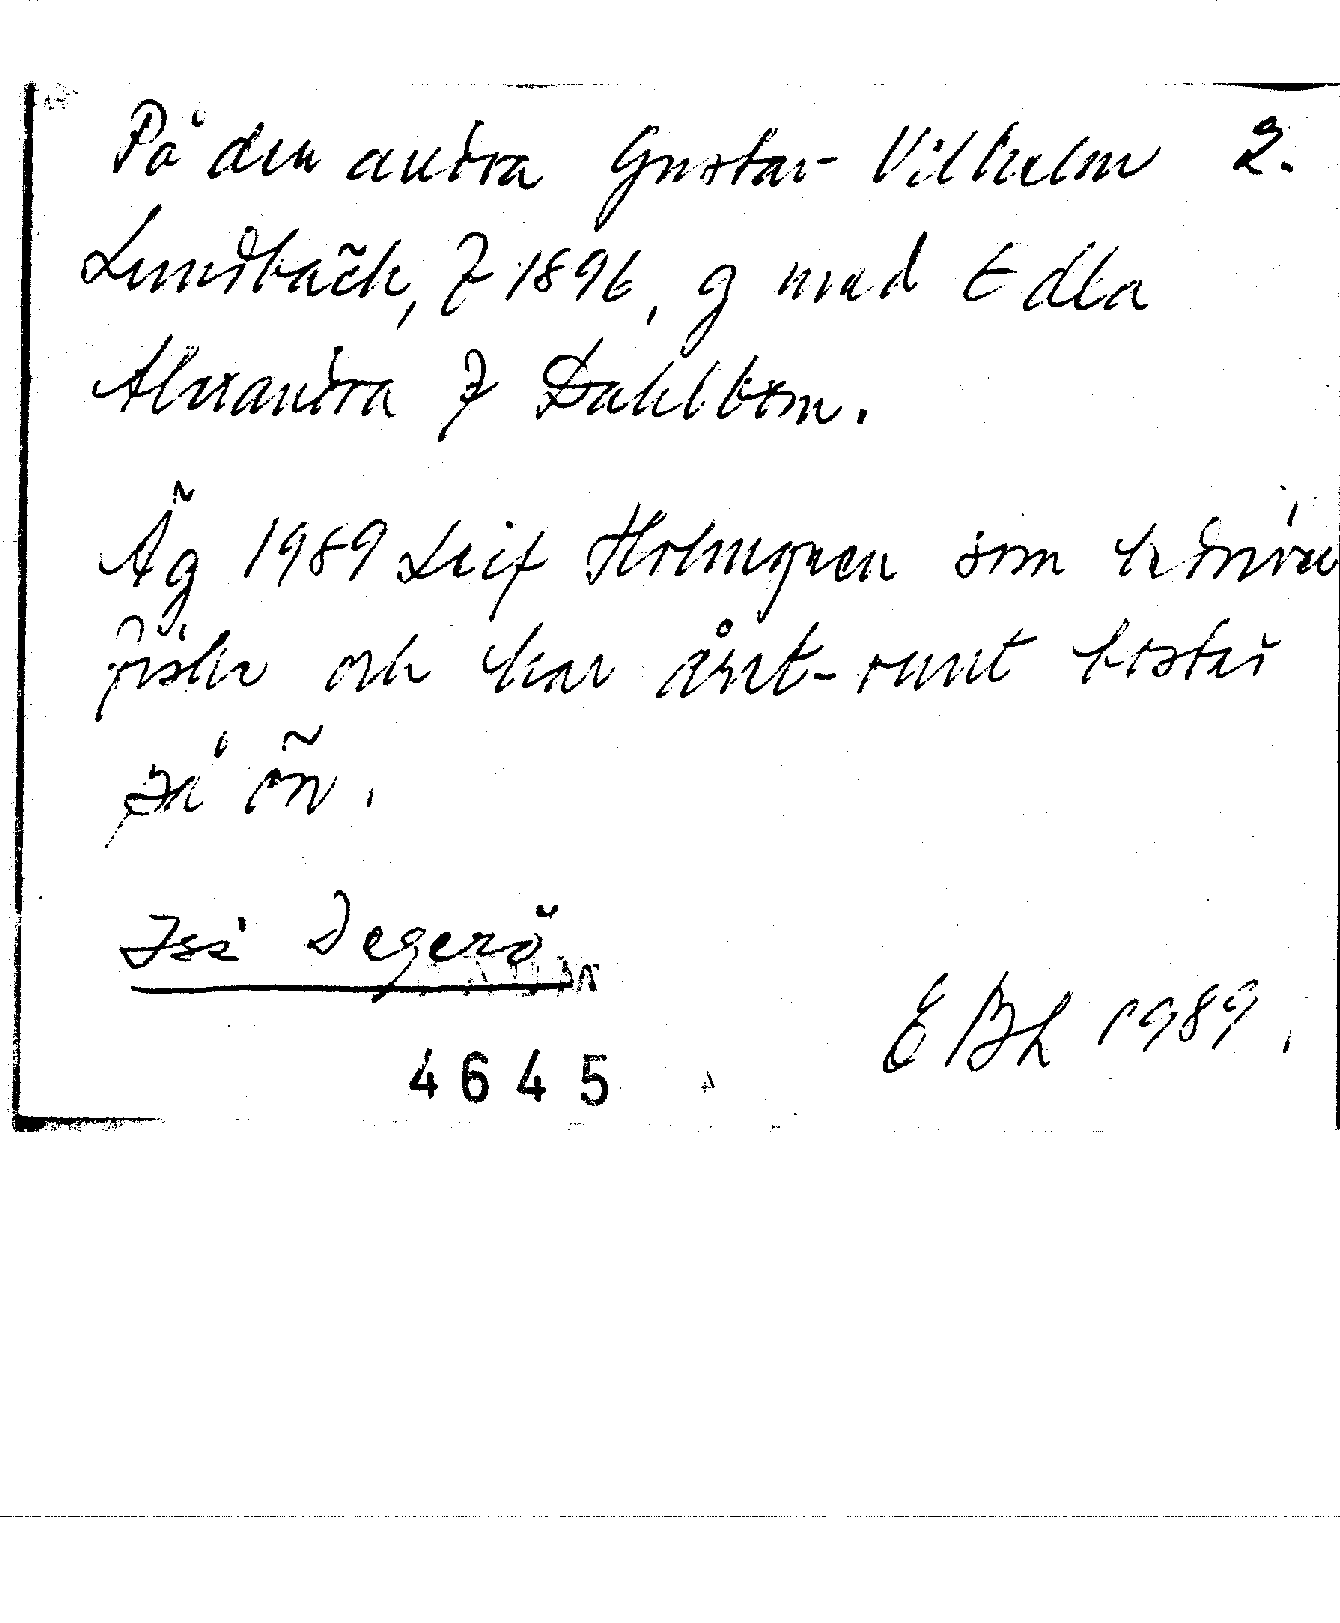 På den andra Gustav Vilhelm 2.
Lundbäck, f 1896, g med Edla
Alexandra f Dahlbom.
Äg 1989 Leif Holmgren som bedriver
fiske och har året-runt bostad
på ön.
Degerö
E Bh 1989.
4645